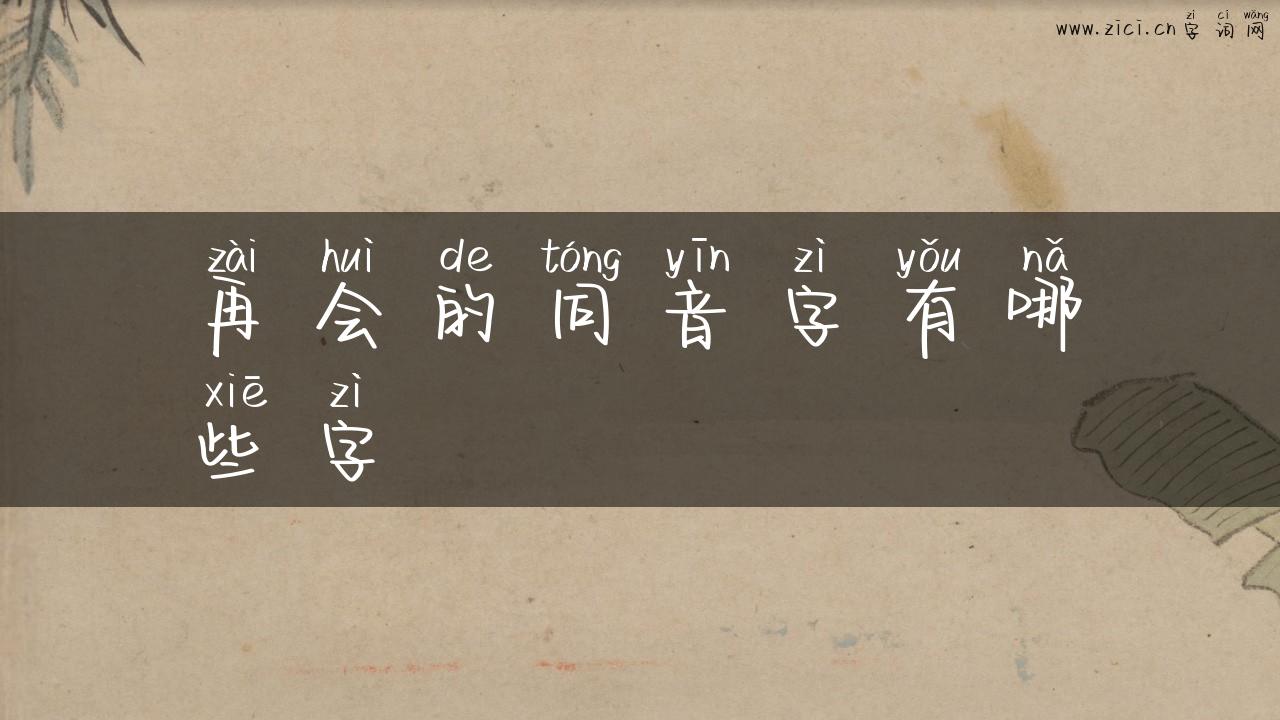 www.zici.cn 字词网
zì cí wǎng
zài huì de tóng yīn zì yǒu nǎ
再会的同音字有哪
xiē zì
些字